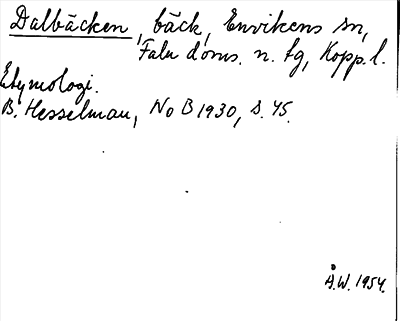 Dalbäcken, bäck, Envikens sn,
Falu doms. n. tg, Kopp. l.
Etymologi.
B. Hesselman, No B 1930, s. 45.
Å.W. 1954.